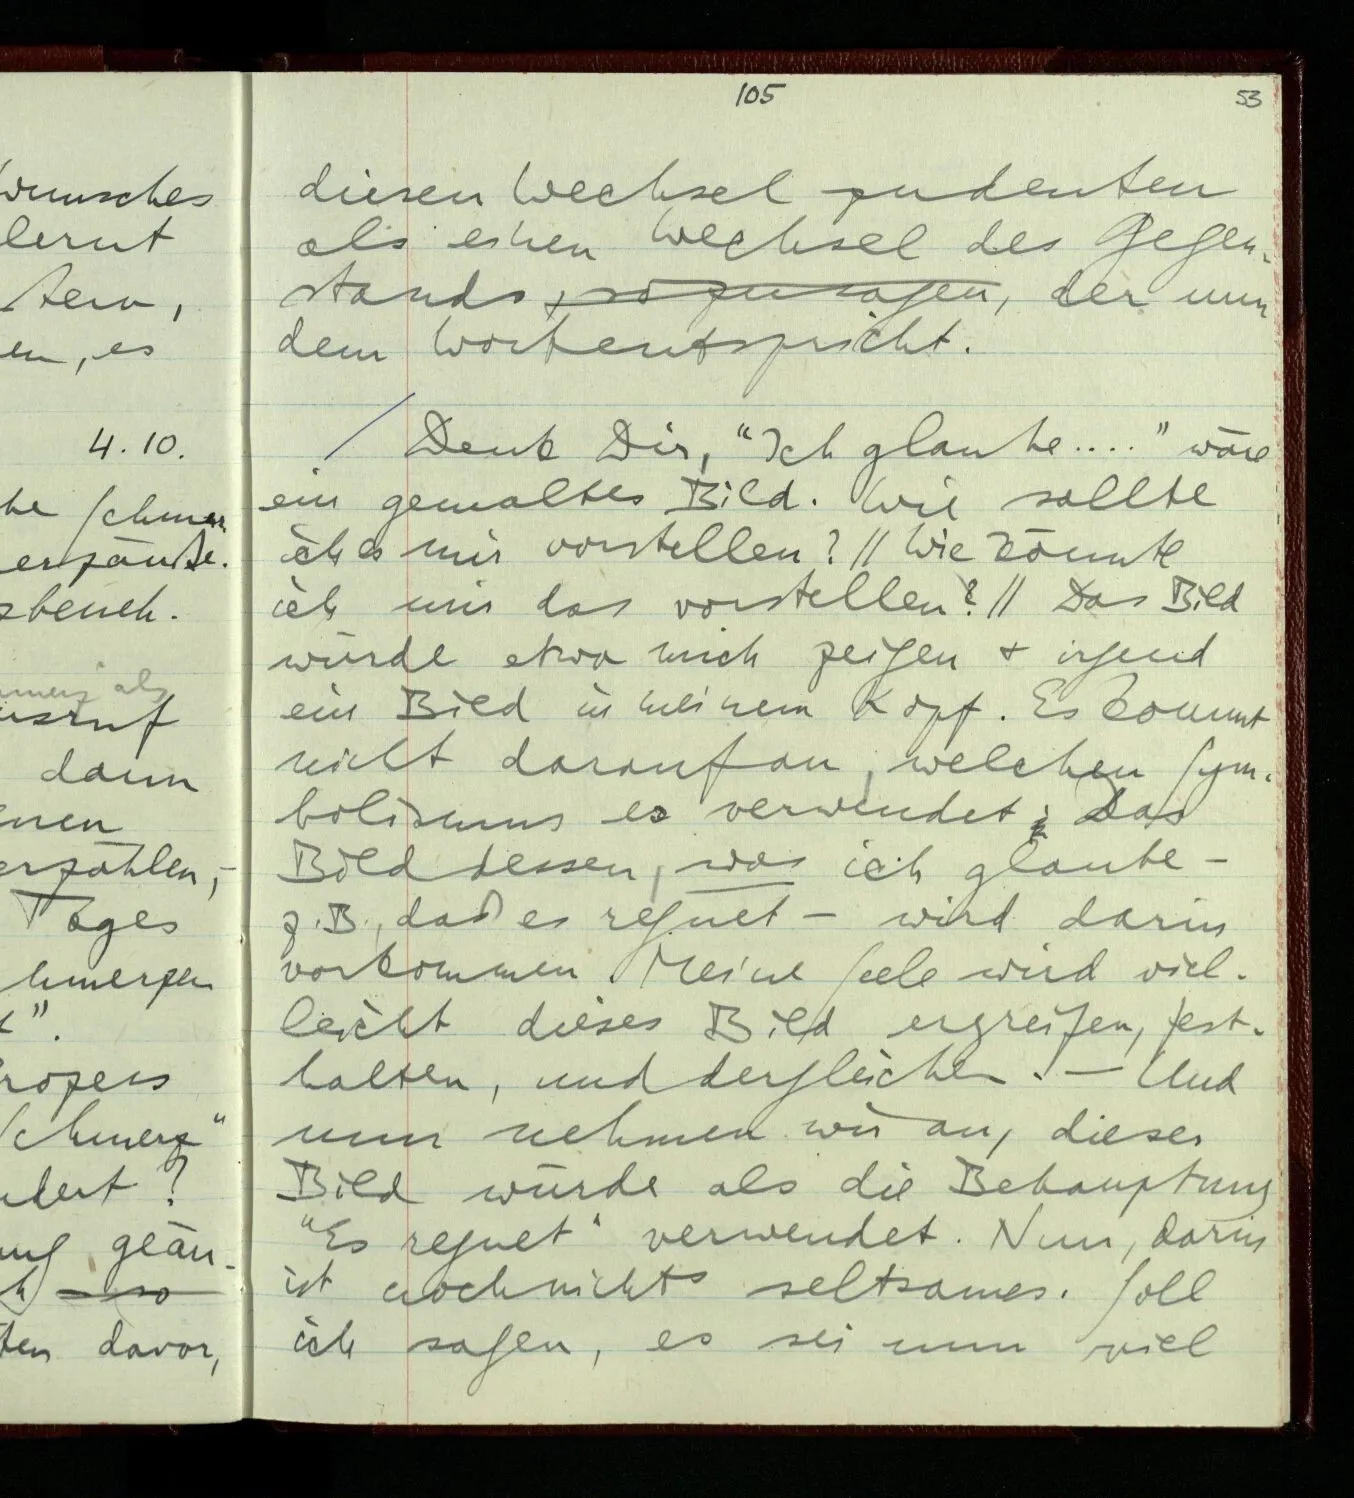 wunsches
lernt
tern,
en, es
4.10.
be Schmer
erzählte.
sbeneh.
als
usruf
dann
enen
erzählen,-
Tages
hmerzen
t".
rozess
Schmerz"
ndert?
ung geän-
so
ten davor,
105
53
diesen Wechsel zu deuten
als einen Wechsel des Gegen-
stands, sozusagen, der nun
dem Wort entspricht.
/ Denk Dir, "Ich glaube...." wäre
ein gemaltes Bild. Wie sollte
ich es mir vorstellen? // Wie könnte
ich mir das vorstellen? // Das Bild
würde etwa mich zeigen & irgend
ein Bild in meinem Kopf. Es kommt
nicht darauf an, welchen Sym-
bolismus es verwendet; Das
Bild dessen, was ich glaube –
z.B., daß es regnet – wird darin
vorkommen Meine Seele wird viel-
leicht dieses Bild ergreifen, fest-
halten, und dergleichen. — Und
nun nehmen wir an, dieses
Bild würde als die Behauptung
"Es regnet" verwendet. Nun, darin
ist noch nichts seltsames. Soll
ich sagen, es sei nun viel